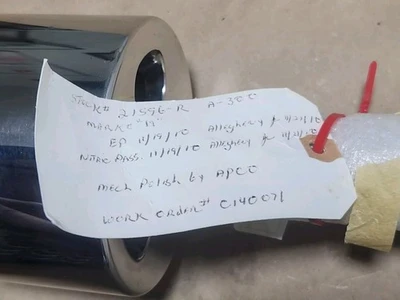 STOCK# 21596-R A-300
MARKE "19"
EP 11/19/10 Allegheny 11/21/10
NITRIC PASS. 11/19/10 Allegheny 11/21/10
Mech Polish by APCO
WORK ORDER# 0140071